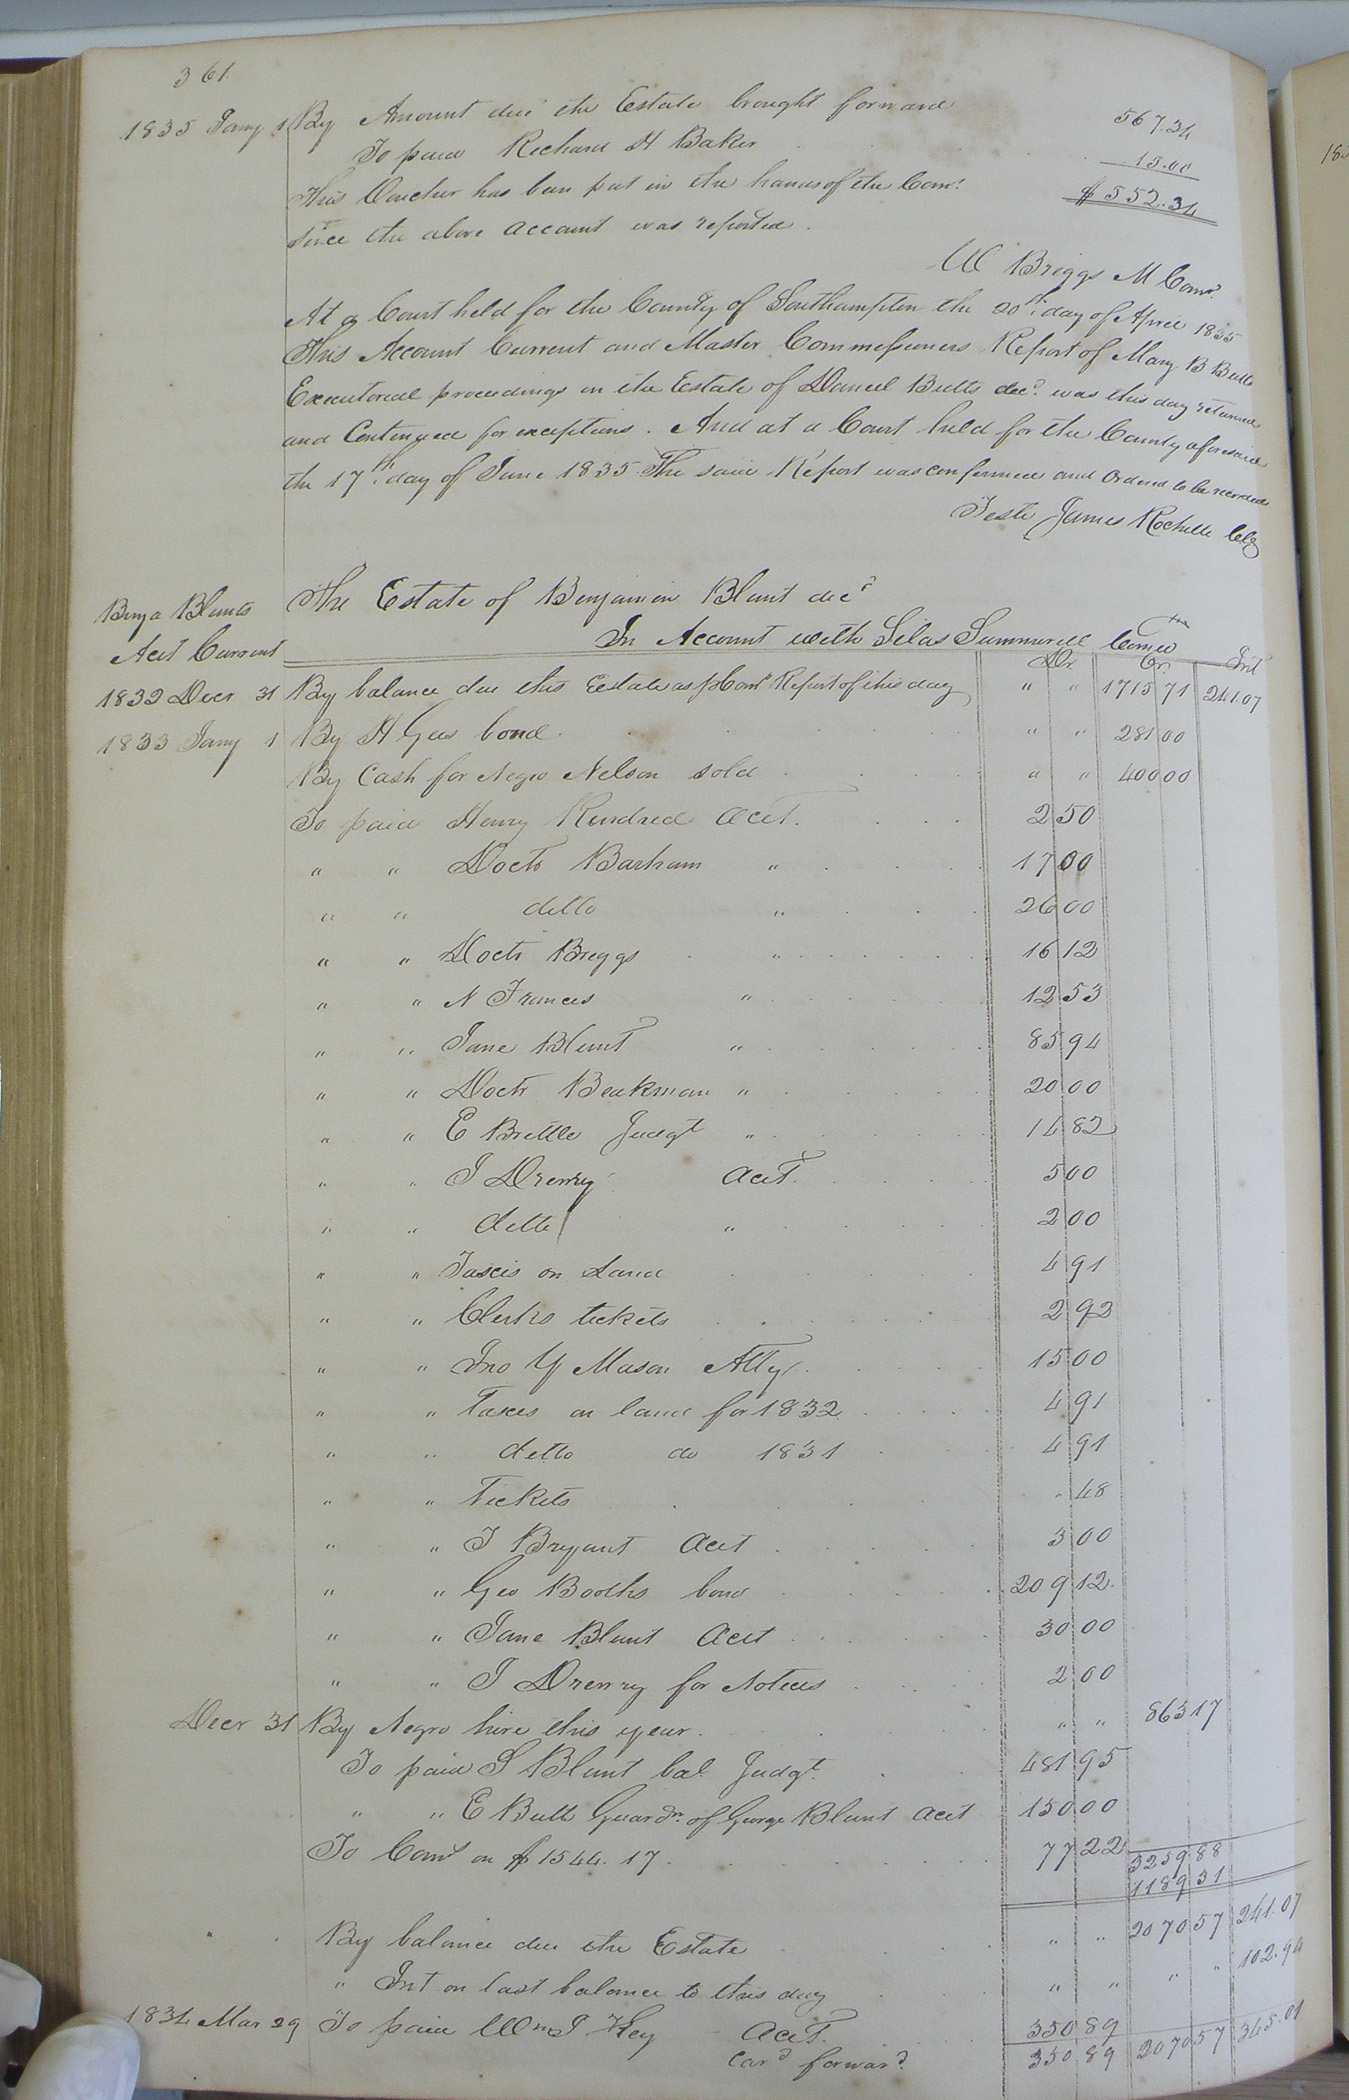 361.
1835 Jany 1 By Amount due the Estate brought forward 567.34
To paid Richard H Baker 15.00
This Voucher has been put in the hands of the Comr. $552.34
since the above account was reported.
W Briggs M Comr.
At a Court held for the County of Southampton the 20th. day of April 1835
This Account Current and Master Commissioners Report of Mary B Butts
Executorial proceedings on the Estate of Daniel Butts decd. was this day returned
and Continued for exceptions. And at a Court held for the County aforesaid
the 17th. day of June 1835 The said Report was confirmed and Ordered to be recorded
Teste James Rochelle Clk
Benja Blunts The Estate of Benjamin Blunt decd
Acct Current In Account with Silas Summerell Comee
Dr. Cr. Int
1832 Decr 31 By balance due this Estate as p Comr Report of this day " " 1715 71 241.07
1833 Jany 1 By H Gees bond " " 281 00
By Cash for Negro Nelson sold " " 400 00
To paid Henry Kindred acct. 2 50
" " Doctr Barham " 17 00
" " ditto " 26 00
" " Doctr Briggs " 16 12
" " N Frances " 12 53
" " Jane Blunt " 85 94
" " Doctr Beakman " 20 00
" " E Brittle Judgt " 14 82
" " J Drewry acct. 5 00
" " ditto " 2 00
" " Taxes on Land 4 91
" " Clerks tickets 2 92
" " Jno Y Mason Atty. 15 00
" " Taxes on land for 1832 4 91
" " ditto do 1831 4 91
" " Tickets " 48
" " J Bryant acct 3 00
" " Geo Booths bond 209 12
" " Jane Blunt acct 30 00
" " J Drewry for Notices 2 00
Decr 31 By Negro hire this year. " " 863 17
To paid S Blunt bal Judgt. 481 95
" " E Butts Guardn. of George Blunt acct 150 00
To Coms on $1544.17 77 22 3259 88
1189 31
By balance due the Estate " " 2070 57 241.07
" Int on last balance to this day " " " " 102.94
1834 Mar 29 To paid Wm J Key acct. 350 89
Card forward. 350 89 2070 57 345.01